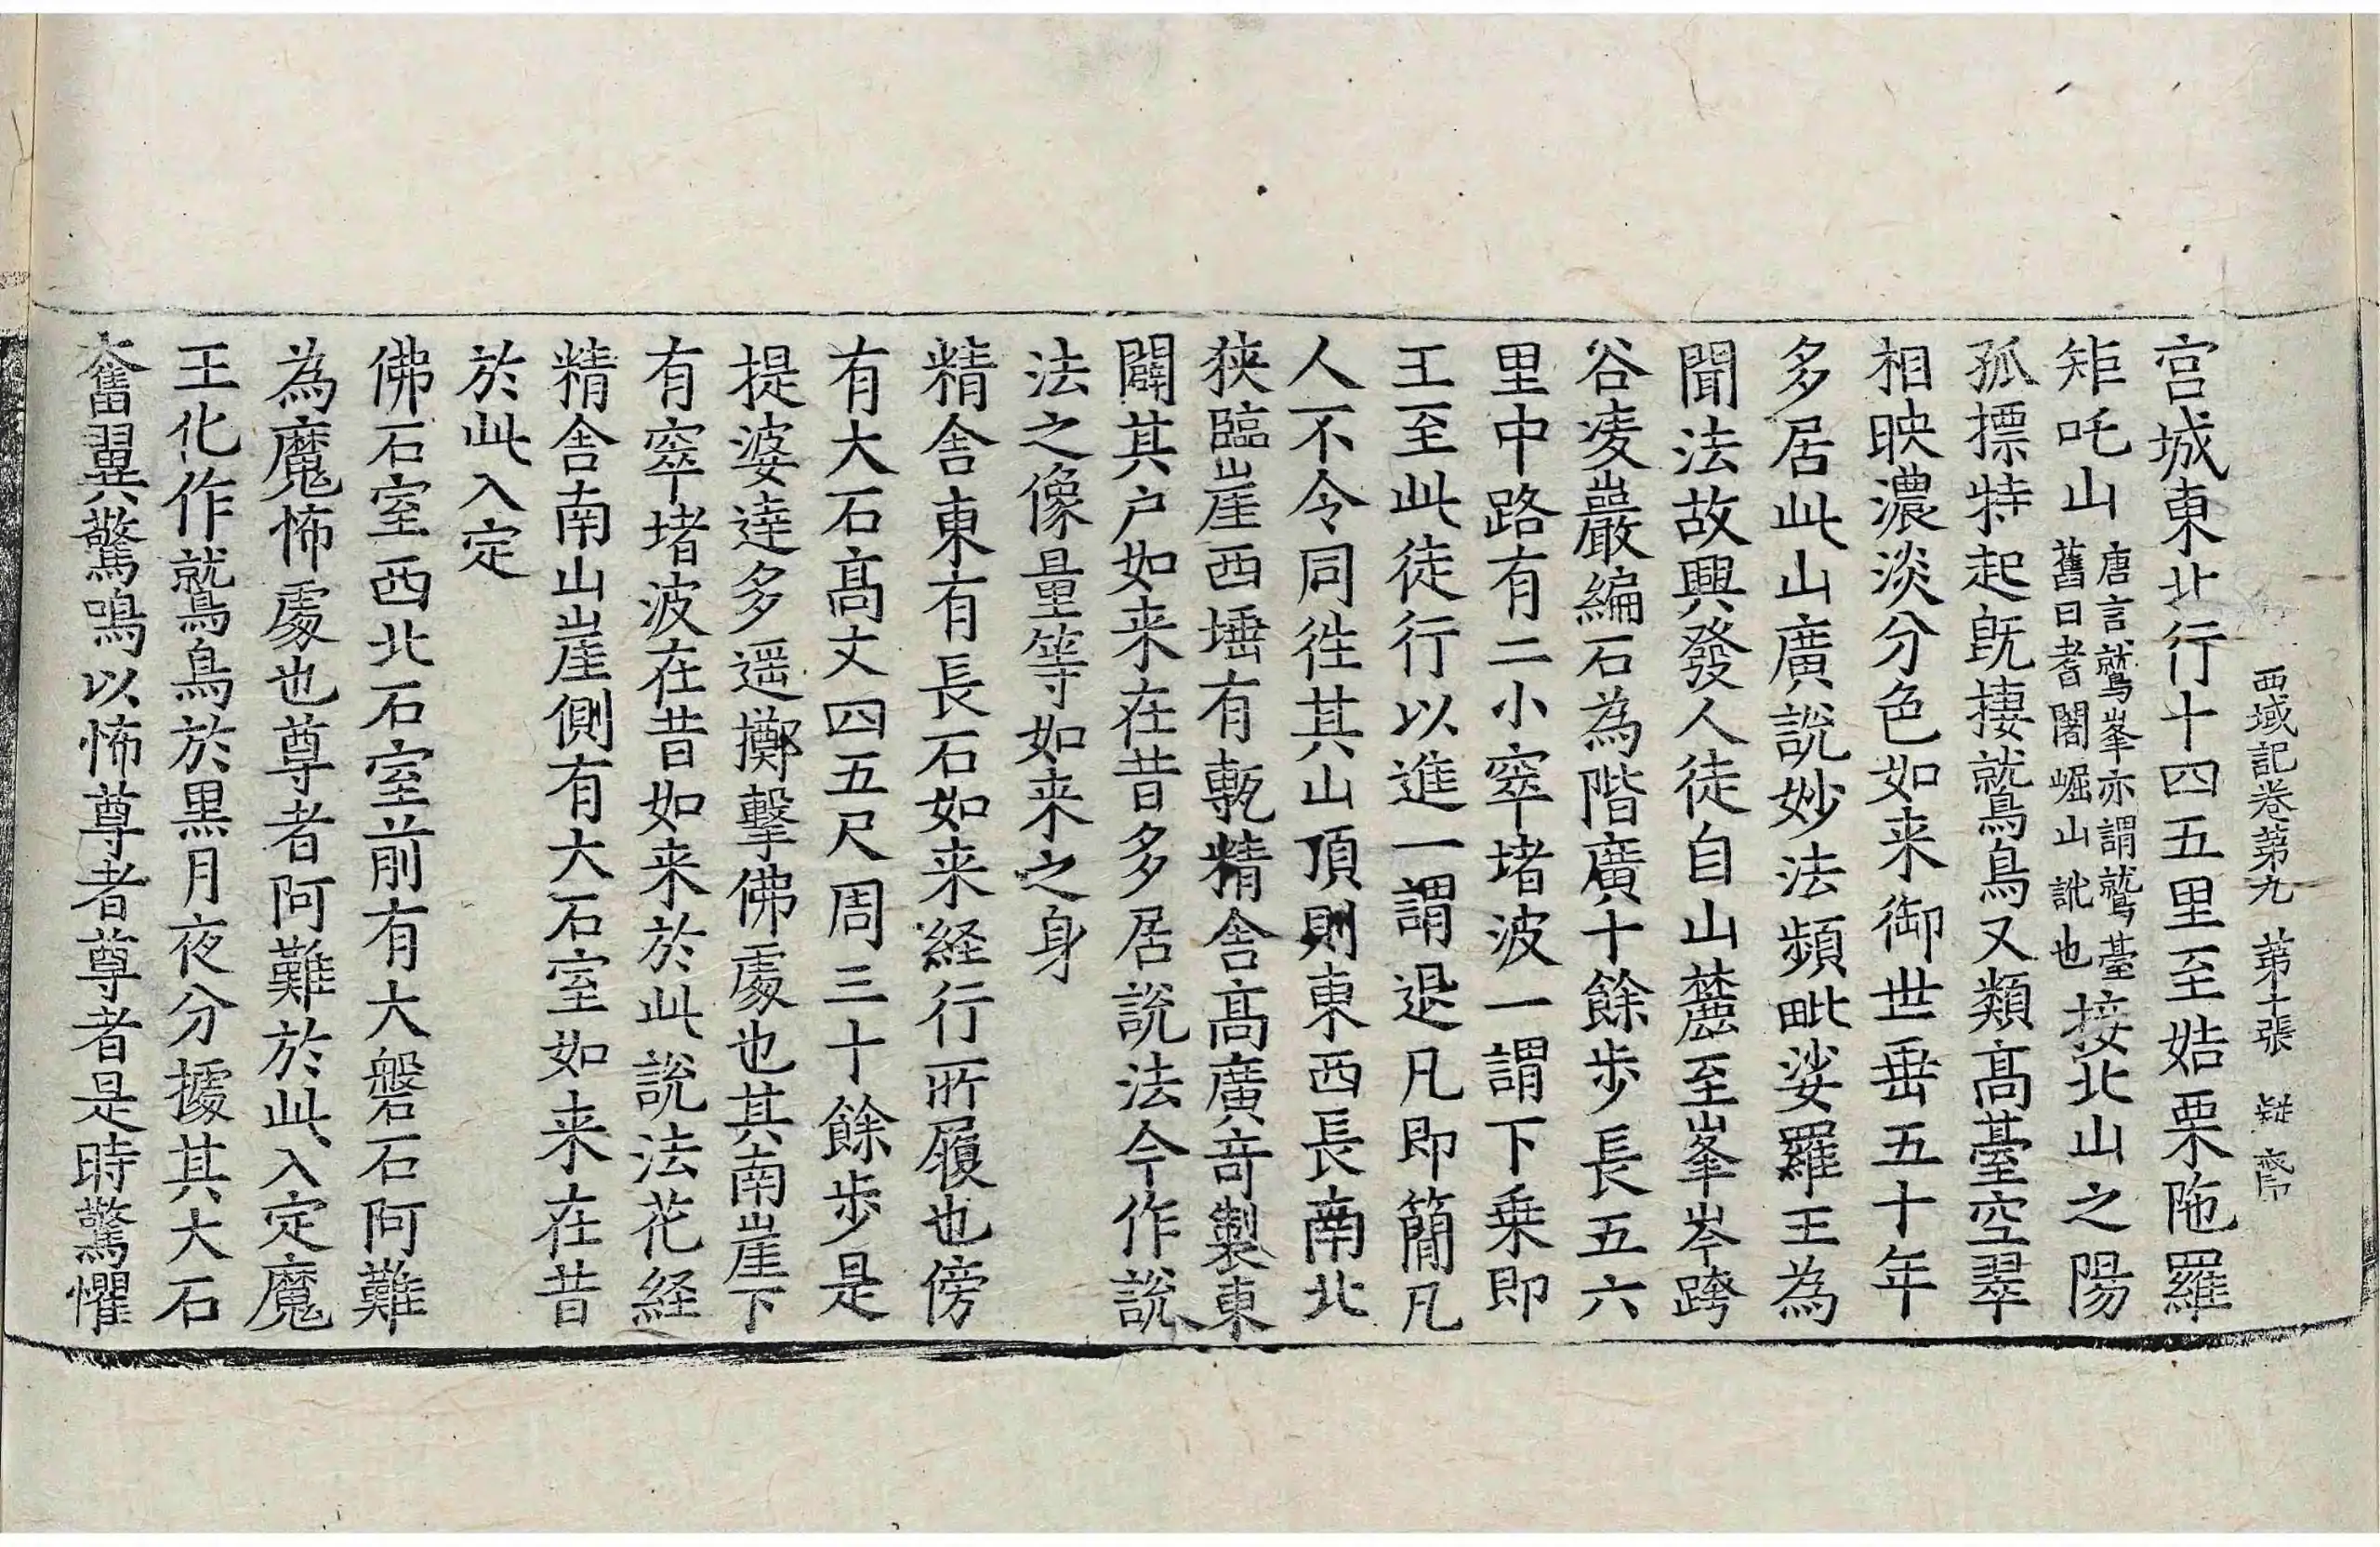 西域記卷第九 第十張 疑
宮城東北行十四五里至姞栗陁羅
矩吒山唐言鷲峯亦謂鷲臺舊曰耆闍崛山訛也接北山之陽
孤摽特起旣捿鷲鳥又類髙臺空翠
相映濃淡分色如来御世垂五十年
多居此山廣說妙法頻毗娑羅王為
聞法故興發人徒自山麓至峯岑跨
谷凌巖編石為階廣十餘步長五六
里中路有二小窣堵波一謂下乗即
王至此徒行以進一謂退凡即簡凡
人不令同徃其山頂則東西長南北
狹臨崖西埵有甎精舍髙廣奇製東
闢其户如来在昔多居說法今作說
法之像量等如来之身
精舍東有長石如来経行所履也傍
有大石髙丈四五尺周三十餘步是
提婆達多遥擲擊佛處也其南崖下
有窣堵波在昔如来於此說法花経
精舍南山崖側有大石室如来在昔
於此入定
佛石室西北石室前有大磐石阿難
為魔怖處也尊者阿難於此入定魔
王化作鷲鳥於黒月夜分據其大石
奮翼驚鳴以怖尊者尊者是時驚懼